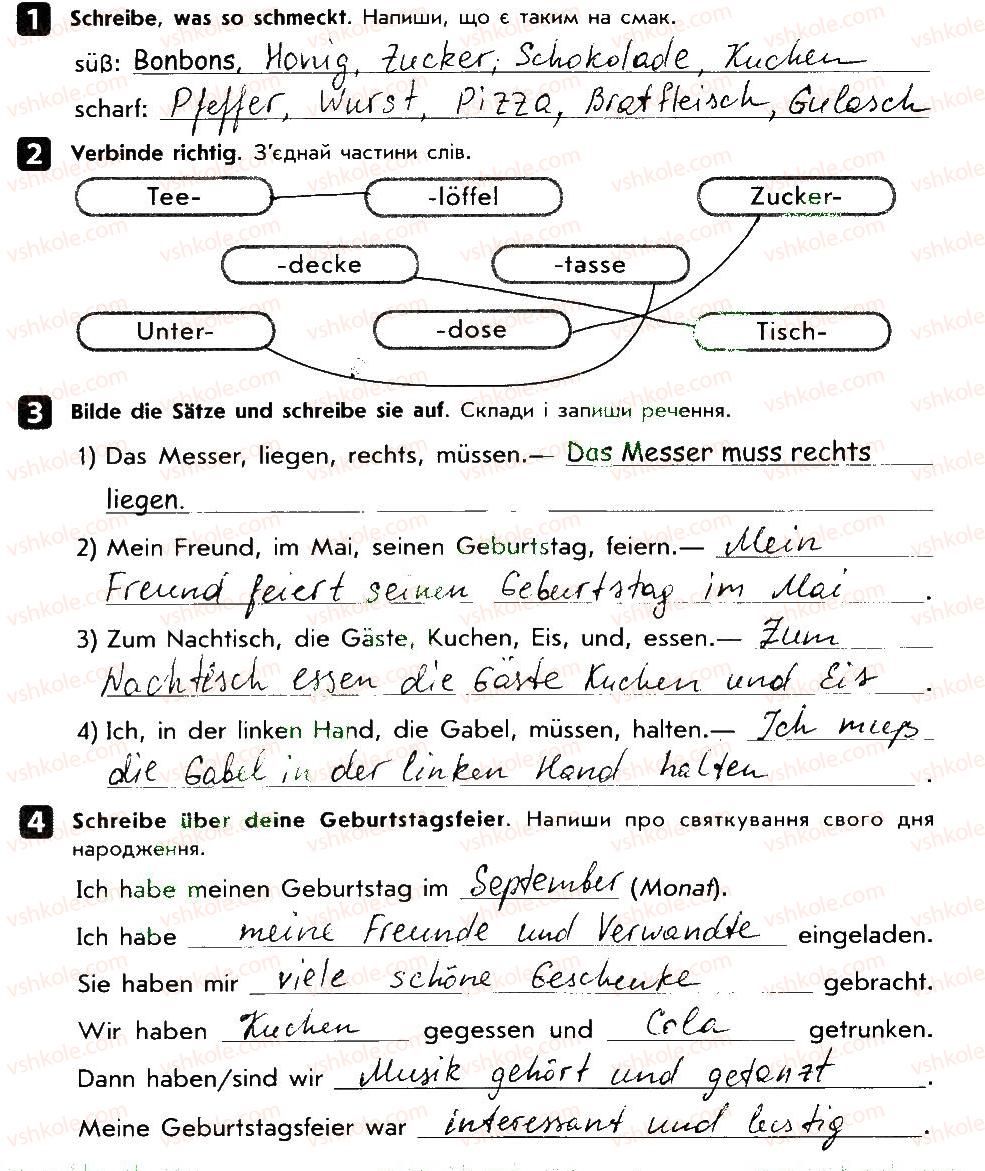 1 Schreibe, was so schmeckt. Напиши, що є таким на смак.
süß: Bonbons, Honig, Zucker, Schokolade, Kuchen
scharf: Pfeffer, Wurst, Pizza, Bratfleisch, Gulasch
2 Verbinde richtig. З'єднай частини слів.
Tee- -löffel Zucker-
-decke -tasse
Unter- -dose Tisch-
3 Bilde die Sätze und schreibe sie auf. Склади і запиши речення.
1) Das Messer, liegen, rechts, müssen.— Das Messer muss rechts
liegen.
2) Mein Freund, im Mai, seinen Geburtstag, feiern.— Mein
Freund feiert seinen Geburtstag im Mai.
3) Zum Nachtisch, die Gäste, Kuchen, Eis, und, essen.— Zum
Nachtisch essen die Gäste Kuchen und Eis.
4) Ich, in der linken Hand, die Gabel, müssen, halten.— Ich muß
die Gabel in der linken Hand halten.
4 Schreibe über deine Geburtstagsfeier. Напиши про святкування свого дня
народження.
Ich habe meinen Geburtstag im September (Monat).
Ich habe meine Freunde und Verwandte eingeladen.
Sie haben mir viele schöne Geschenke gebracht.
Wir haben Kuchen gegessen und Cola getrunken.
Dann haben/sind wir Musik gehört und getanzt.
Meine Geburtstagsfeier war interessant und lustig.
vshkole.com